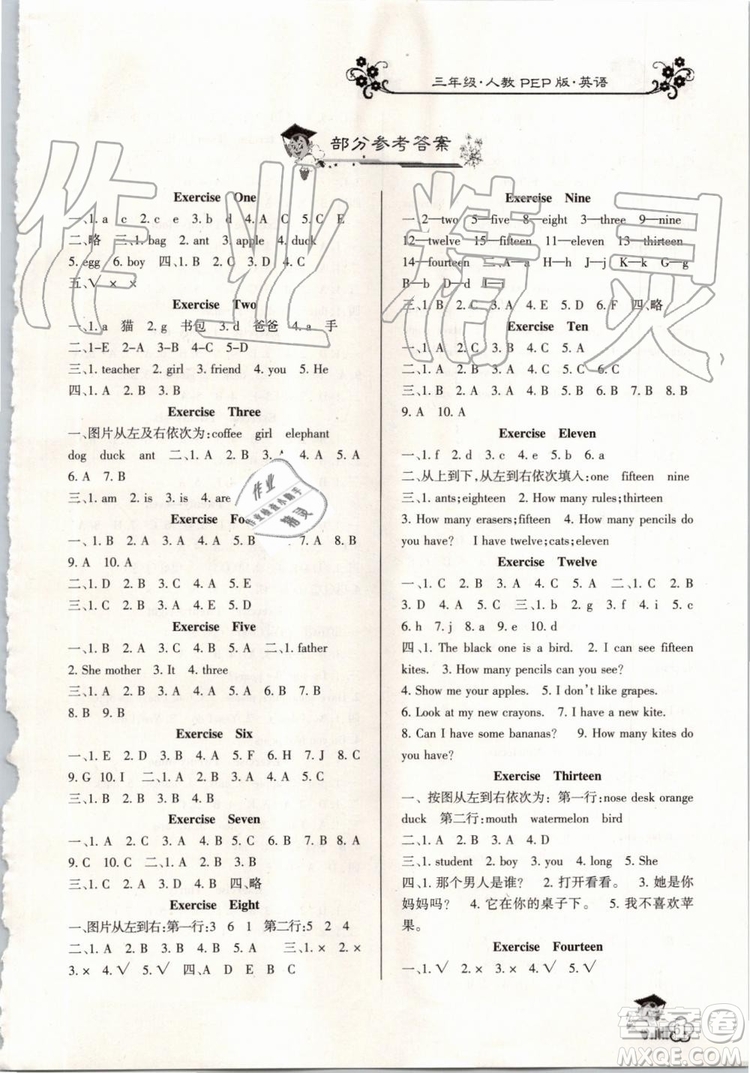 三年级·人教PEP版·英语
部分参考答案
Exercise One
一、1. a c 2. c e 3. b d 4. A C 5. C E
二、略 三、1. bag 2. ant 3. apple 4. duck
5. egg 6. boy 四、1. B 2. A 3. B 4. A
五、√ × ×
Exercise Two
一、1. a 猫 2. g 书包 3. d 爸爸 4. a 手
二、1-E 2-A 3-B 4-C 5-D
三、1. teacher 2. girl 3. friend 4. you 5. He
四、1. A 2. B 3. B
Exercise Three
一、图片从左及右依次为:coffee girl elephant
dog duck ant 二、1. A 2. B 3. A 4. A 5. A
6. A 7. B
三、1. am 2. is 3. is 4. are
Exercise
一、1. B 2. A 3. A 4. B 5. B 6. A 7. A 8. B
9. A 10. A
二、1. D 2. B 3. C 4. A 5. E
三、1. B 2. C 3. A 4. E 5. D
Exercise Five
一、1. B 2. B 3. A 4. A 5. B 二、1. father
2. She mother 3. It 4. three
三、1. B 2. A 3. A 4. A 5. A 6. A 7. A
8. B 9. B
Exercise Six
一、1. E 2. D 3. B 4. A 5. C 6. H 7. F 8. J
9. G 10. I 二、1. A 2. A 3. B 4. A 5. B
三、1. B 2. D 3. A 4. C
Exercise Seven
一、1. A 2. B 3. B 4. A 5. A 6. A 7. B 8. A
9. C 10. C 二、1. B 2. B 3. A 4. B 5. A
三、1. A 2. C 3. D 4. B 四、略
Exercise Eight
一、图片从左到右:第一行:3 6 1 第二行:5 2 4
二、1. C 2. A 3. B 4. A 5. A 三、1. × 2. √
3. × 4. √ 5. √ 四、A D E B C
Exercise Nine
一、2—two 5—five 8—eight 3—three 9—nine
12—twelve 15—fifteen 11—eleven 13—thirteen
14—fourteen 二、H—h J—j K—k G—g
三、1. B 2. C 3. A 4. E 5. D 四、略
Exercise Ten
一、1. B 2. D 3. A 4. C
二、1. A 2. B 3. C 4. B 5. C 6. C
三、1. B 2. A 3. B 4. A 5. A 6. B 7. A 8. B
9. A 10. A
Exercise Eleven
一、1. f 2. c 3. d 4. e 5. b 6. a
二、从上到下,从左到右依次填入:one fifteen nine
三、1. ants;eighteen 2. How many rules;thirteen
3. How many erasers;fifteen 4. How many pencils do
you have? I have twelve;cats;eleven
Exercise Twelve
一、1. C 2. A 3. B 4. C 5. A 二、1. B 2. B
3. D 4. A 5. A 三、1. i 2. b 3. f 4. a 5. c
6. h 7. j 8. g 9. e 10. d
四、1. The black one is a bird. 2. I can see fifteen
kites. 3. How many pencils can you see?
4. Show me your apples. 5. I don't like grapes.
6. Look at my new crayons. 7. I have a new kite.
8. Can I have some bananas? 9. How many kites do
you have?
Exercise Thirteen
一、按图从左到右依次为: 第一行:nose desk orange
duck 第二行:mouth watermelon bird
二、1. C 2. A 3. A 4. D
三、1. student 2. boy 3. you 4. long 5. She
四、1. 那个男人是谁? 2. 打开看看。 3. 她是你
妈妈吗? 4. 它在你的桌子下。 5. 我不喜欢苹
果。
Exercise Fourteen
一、1. √ 2. × 3. × 4. √ 5. √
作业精灵
作业
精灵
答案圈
MXQE.COM